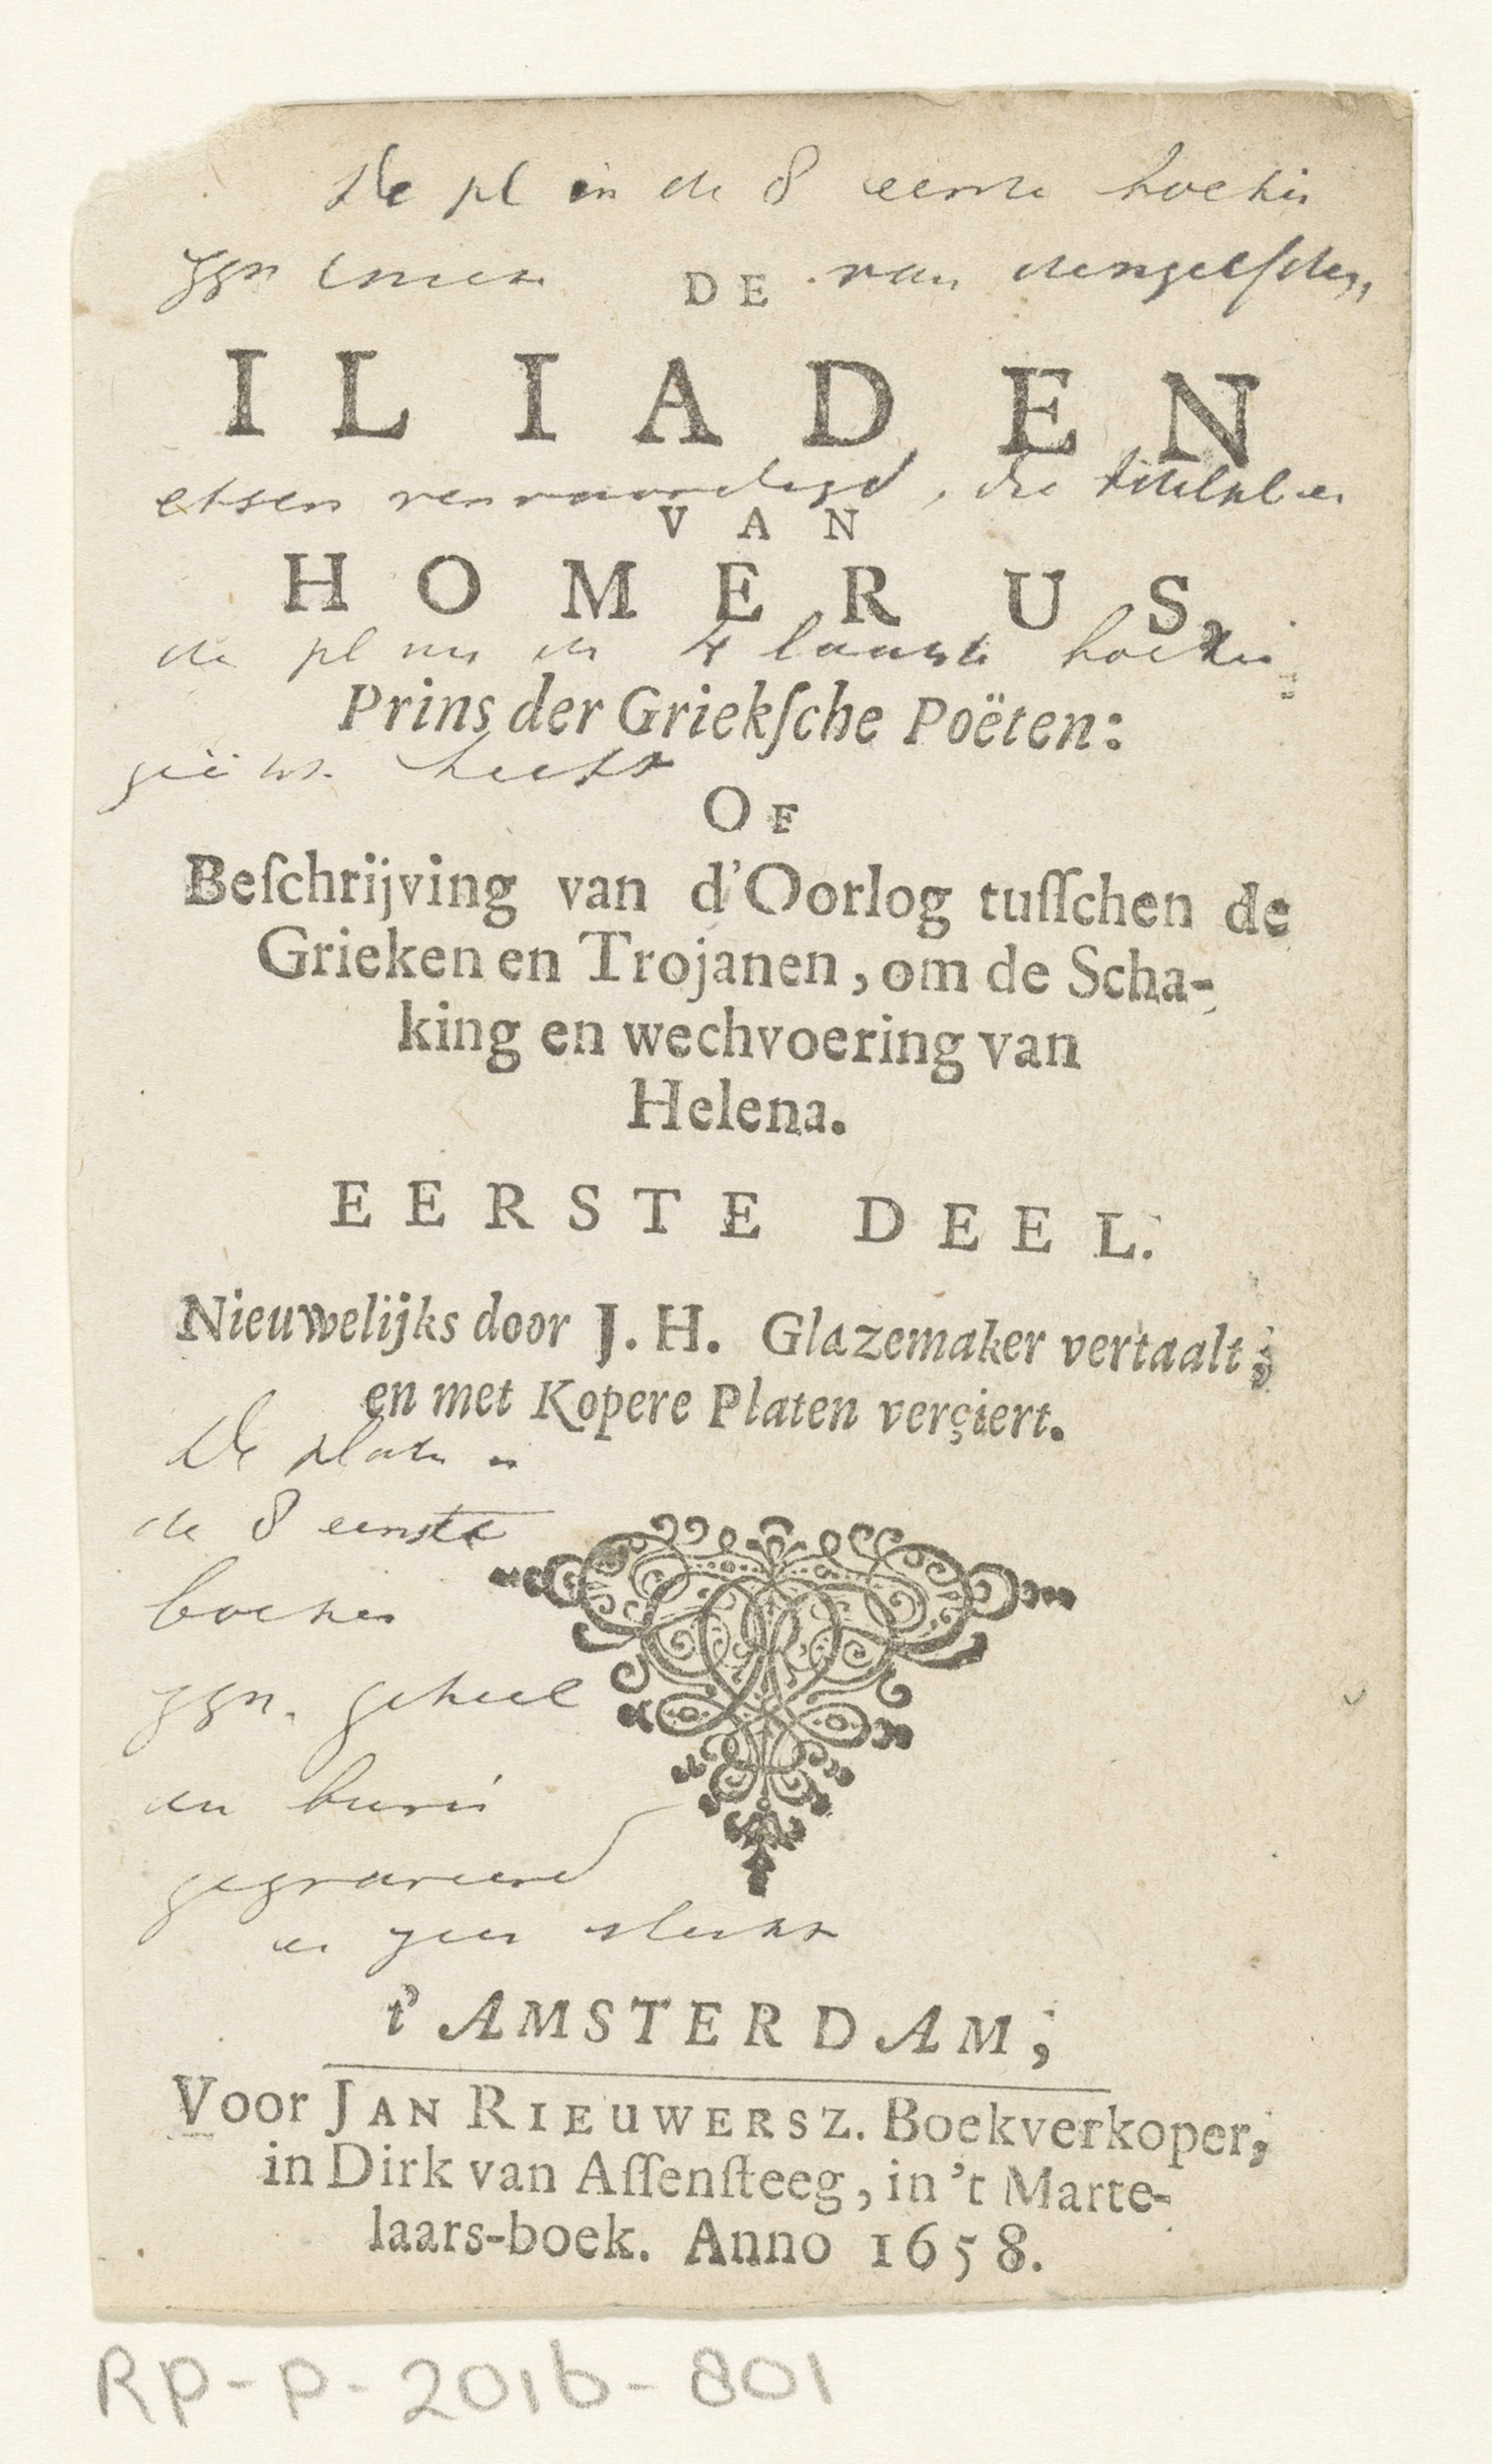 De pl in de 8 eerste boeken
zijn DE van dengelfden,
ILIADEN
etsen vervaardigd, die titelpl en
VAN
HOMERUS,
de pl in de 4 laatste boeken
Prins der Griekſche Poëten:
geëtst heeft
OF
Beſchrijving van d'Oorlog tuſſchen de
Grieken en Trojanen, om de Scha-
king en wechvoering van
Helena.
EERSTE DEEL.
Nieuwelijks door J. H. Glazemaker vertaalt;
en met Kopere Platen verçiert.
De platen in
de 8 eerste
boeken
zijn geheel
en burin
gegraveerd
en zeer slecht
t' AMSTERDAM,
Voor JAN RIEUWERSZ. Boekverkoper,
in Dirk van Aſſenſteeg, in 't Marte-
laars-boek. Anno 1658.
RP-P-2016-801